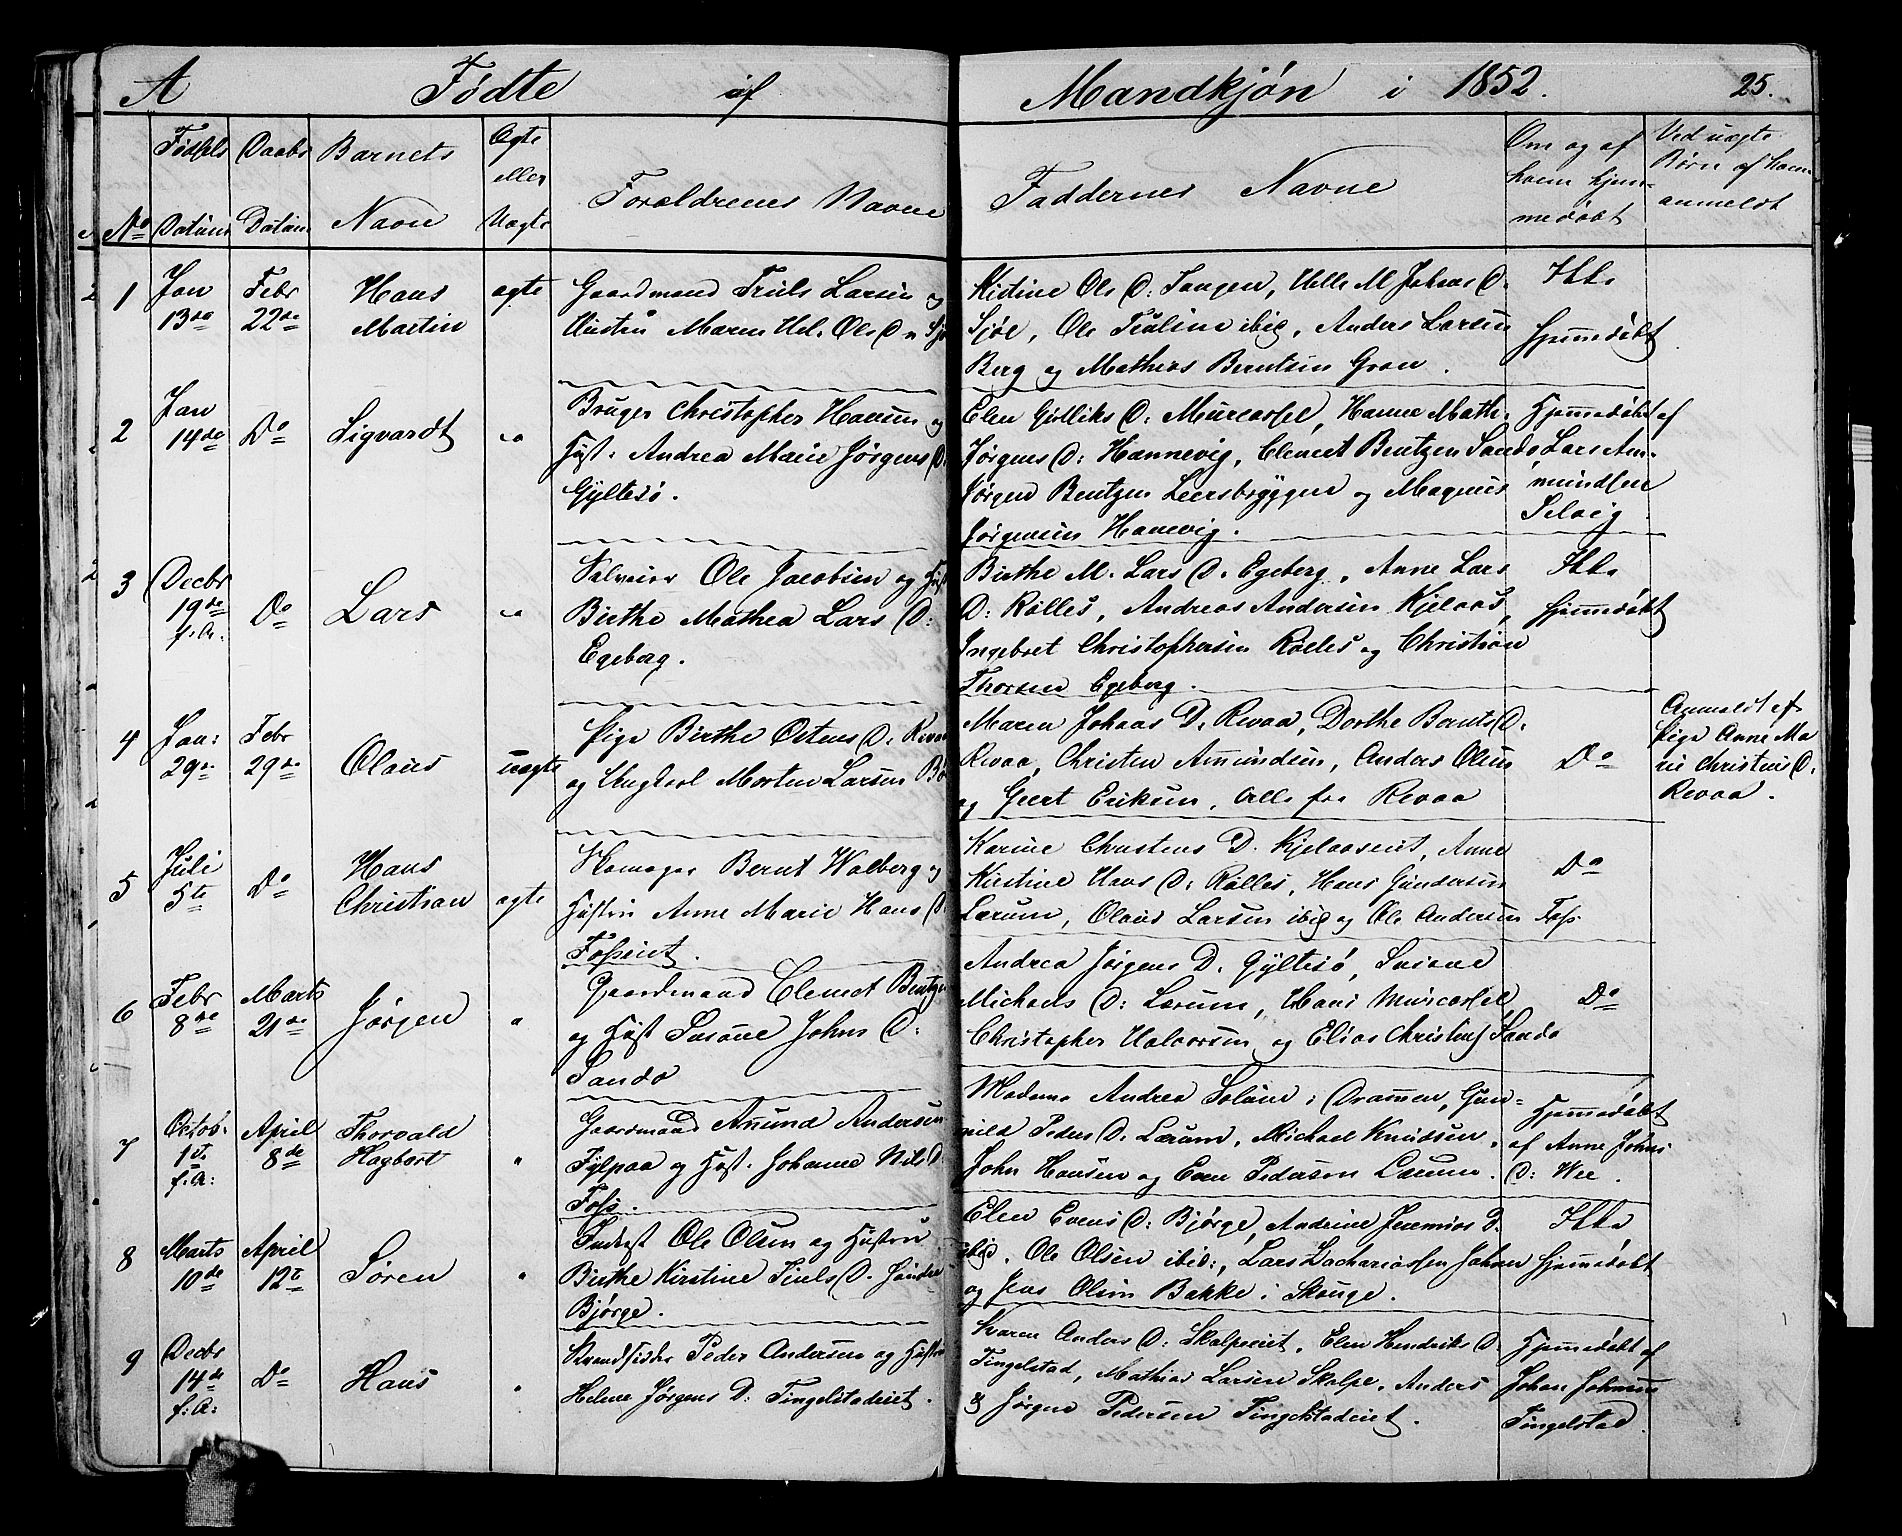 A Fødte af Mandkjøn i 1852. 25.
No
Fødsels Datum
Daabs Datum
Barnets Navn
Ægte eller Uægte
Forældrenes Navne
Faddernes Navne
Om og af hvem hjemmedøbt
Ved uægte Børn af hvem anmeldt
1
Jan 13de
Febr 22de
Hans Martin
ægte
Gaardmand Truls Larsen og
Hustru Maren Hel. Ols D.
Kistine Ols D: Tangen, Helle M Johans D.
Sjøe, Ole Paulsen ibid, Anders Larsen
Berg og Mathias Berntsen Gran.
Ikke
hjemmedøbt
2
Jan 14de
Do
Sigvardt
"
Bruger Christopher Hansen og
Hust. Andrea Marie Jørgens D:
Gyltesø.
Elen Gulliks D: Murcassel, Hanne Math.
Jørgens D: Hannevig, Clemet Bentzen Sande
Jørgen Bentzen Leersbryggen og Magnus
Jørgensen Hanevig.
Hjemmedøbt af
Lars Am-
mundsen
Selvig
3
Decbr 19de f.A:
Do
Lars
"
Selveier Ole Jacobsen og Hust
Birthe Mathea Lars D:
Egeberg.
Birthe M. Lars D. Egeberg, Anne Lars
D: Rølles, Andreas Andersen Kjelaas,
Ingebret Christophersen Rølles og Christian
Thorsen Egeberg.
Ikke
hjemmedøbt
4
Jan: 29de
Febr 29de
Olaus
uægte
Pige Birthe Ostens D. Revaa
og Ungkarl Morten Larsen
Maren Johans D. Revaa, Dorthe Bernts D.
Revaa, Christen Amundsen, Anders Olsen
og Geert Eriksen, Alle fra Revaa
Do
Anmeldt af
Pige Anne Ma
rie Christens D.
Revaa.
5
Juli 5te
Do
Hans Christian
ægte
Skomager Bernt Walberg og
Hustru Anne Marie Hans D.
Fosseiet.
Karine Christens D. Kjelaaseiet, Anne
Kirstine Hans D: Rølles, Hans Gundersen
Lærum, Olaus Larsen ibid og Ole Andersen Foss.
Do
6
Febr 8de
Marts 21de
Jørgen
"
Gaardmand Clemet Bentzen
og Hust Susane Johns D:
Sande
Andrea Jørgens D. Gyltesø, Susane
Michaels D: Lærum, Hans Murcassel
Christopher Halvorsen og Elias Christens Sande
Do
7
Octob. 1te f.A:
April 8de
Thorvald Hagbart
"
Gaardmand Amund Andersen
Fylpaa og Hust. Johanne Nils D:
Foss.
Madame Andrea Solum i Drammen, Gun-
nild Peders D. Lærum, Michael Knudsen,
John Hansen og Even Pedersen Lærum.
Hjemmedøbt
af Anne Johns
D: Wee.
8
Marts 10de
April 12te
Søren
"
Inderst Ole Olsen og Hustru
Birthe Kirstine Niels D. Søndre
Bjørge.
Elen Evens D: Bjørge, Andrine Jeremias D.
ibid, Ole Olsen ibid:, Lars Zachariassen Johnsr
og Jens Olsen Bakke i Skouge.
Ikke
hjemmedøbt
9
Decbr 14de f:A:
Do
Hans
"
Strandsidder Peder Andersen og Hustru
Helene Jørgens D: Tingelstadeiet.
Karen Anders D: Skalpeeiet, Elen Hendriks D.
Tingelstad, Mathias Larsen Skalpe, Anders
& Jørgen Pedersen Tingelstadeiet.
Hjemmedøbt af
Johan Johnsen
Tingelstad.